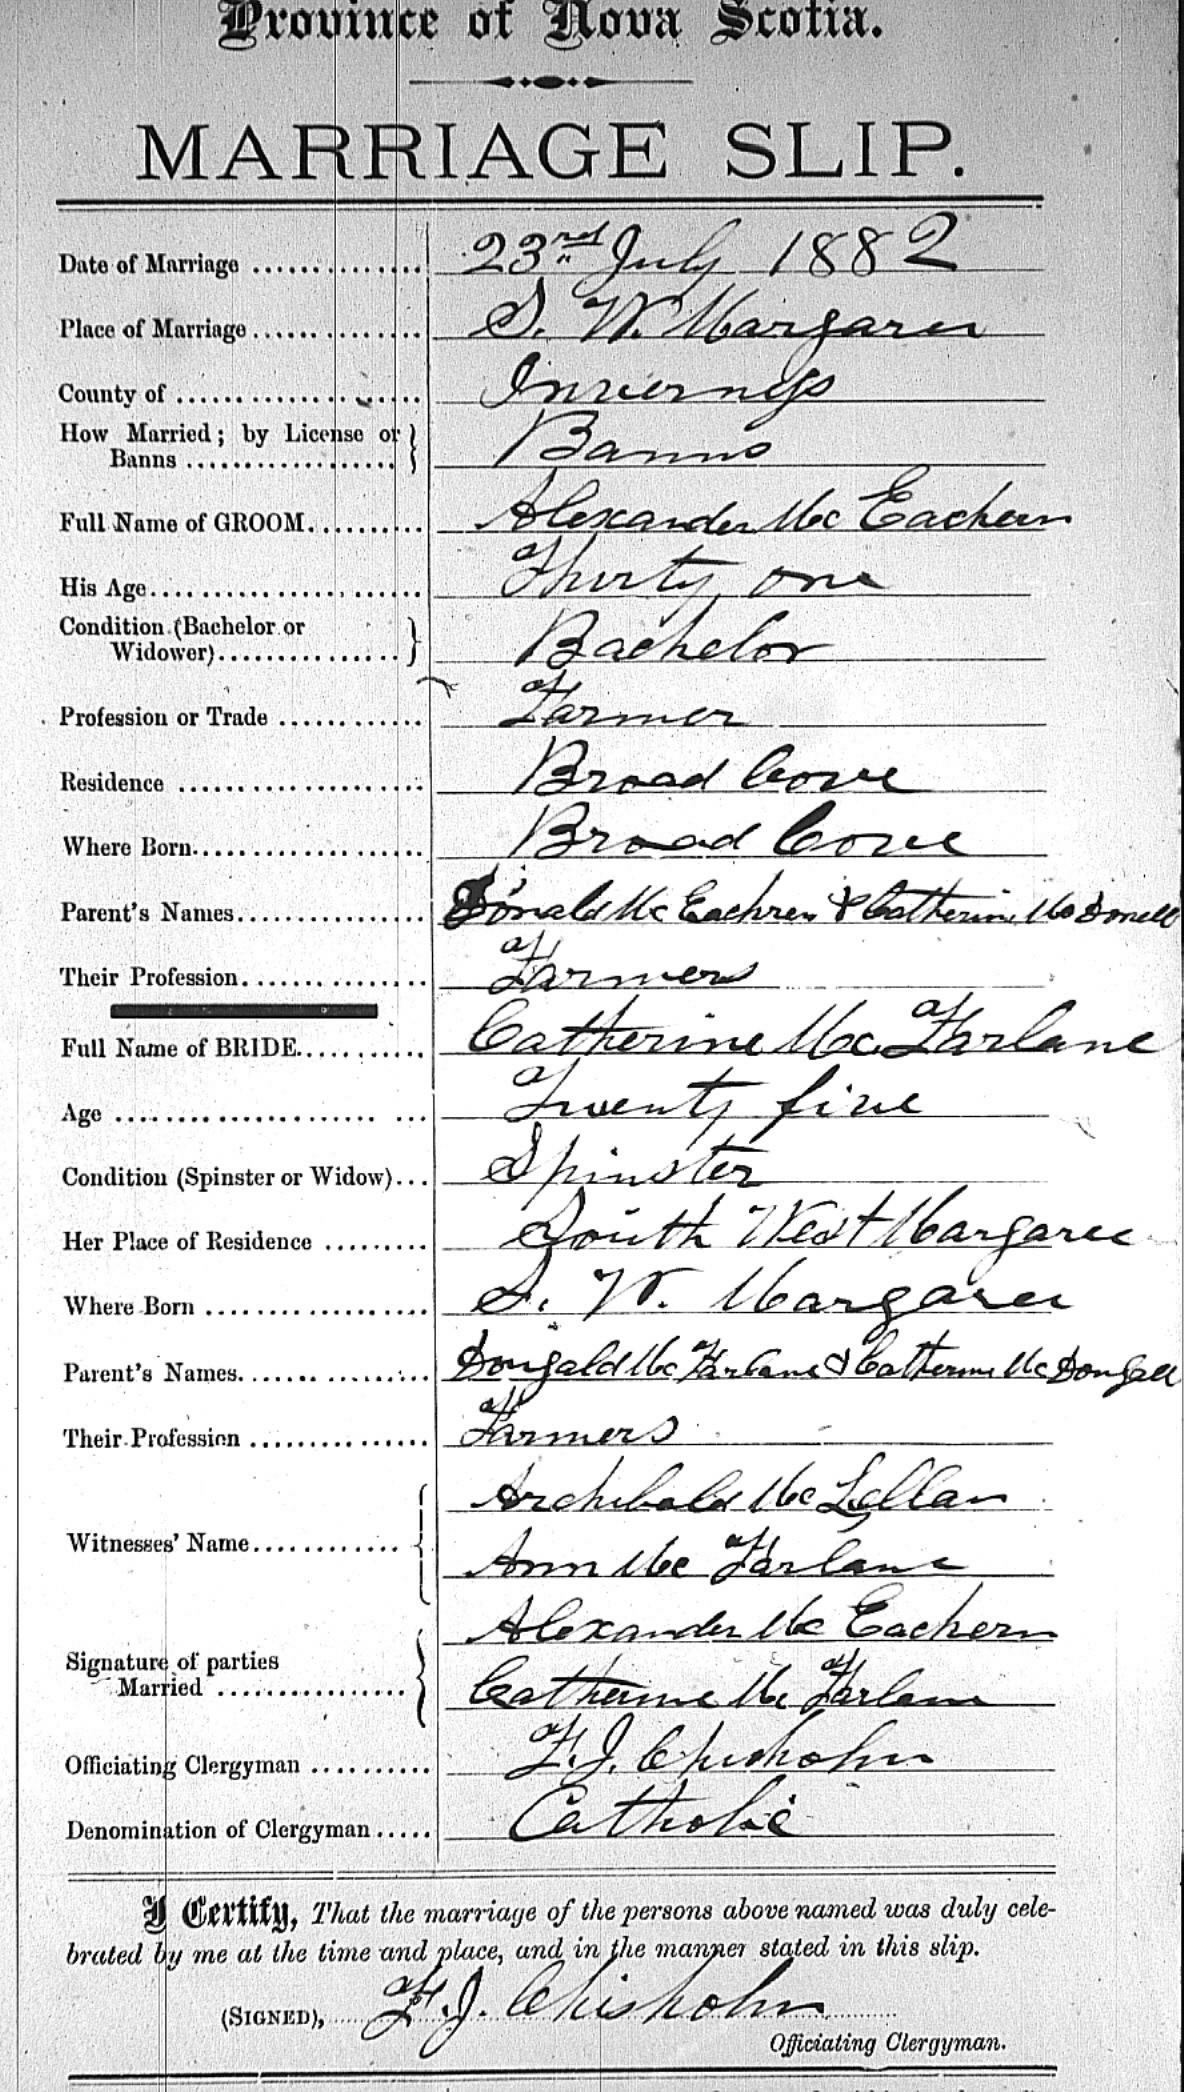 Province of Nova Scotia.
MARRIAGE SLIP.
Date of Marriage ............... 23rd July 1882
Place of Marriage ............... S. W. Margaree
County of ............... Inverness
How Married; by License or
Banns ............... Banns
Full Name of GROOM ............... Alexander Mc Eachern
His Age ............... Thirty one
Condition (Bachelor or
Widower) ............... Bachelor
Profession or Trade ............... Farmer
Residence ............... Broad Cove
Where Born ............... Broad Cove
Parent's Names ............... Donald Mc Eachren & Catherine Mc Donell
Their Profession ............... Farmers
Full Name of BRIDE ............... Catherine Mc Farlane
Age ............... Twenty five
Condition (Spinster or Widow) ... Spinster
Her Place of Residence ......... South West Margaree
Where Born ............... S. W. Margaree
Parent's Names ............... Dougald Mc Farlane & Catherine Mc Dougall
Their Profession ............... Farmers
Archibald Mc Lellan
Witnesses' Name ...............
Ann Mc Farlane
Alexander Mc Eachern
Signature of parties
Married ............... Catherine Mc Farlane
Officiating Clergyman .......... F. J. Chisholm
Denomination of Clergyman ..... Catholic
I Certify, That the marriage of the persons above named was duly cele-
brated by me at the time and place, and in the manner stated in this slip.
(SIGNED), F. J. Chisholm
Officiating Clergyman.